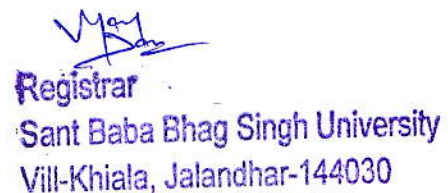 Registrar
Sant Baba Bhag Singh University
Vill-Khiala, Jalandhar-144030